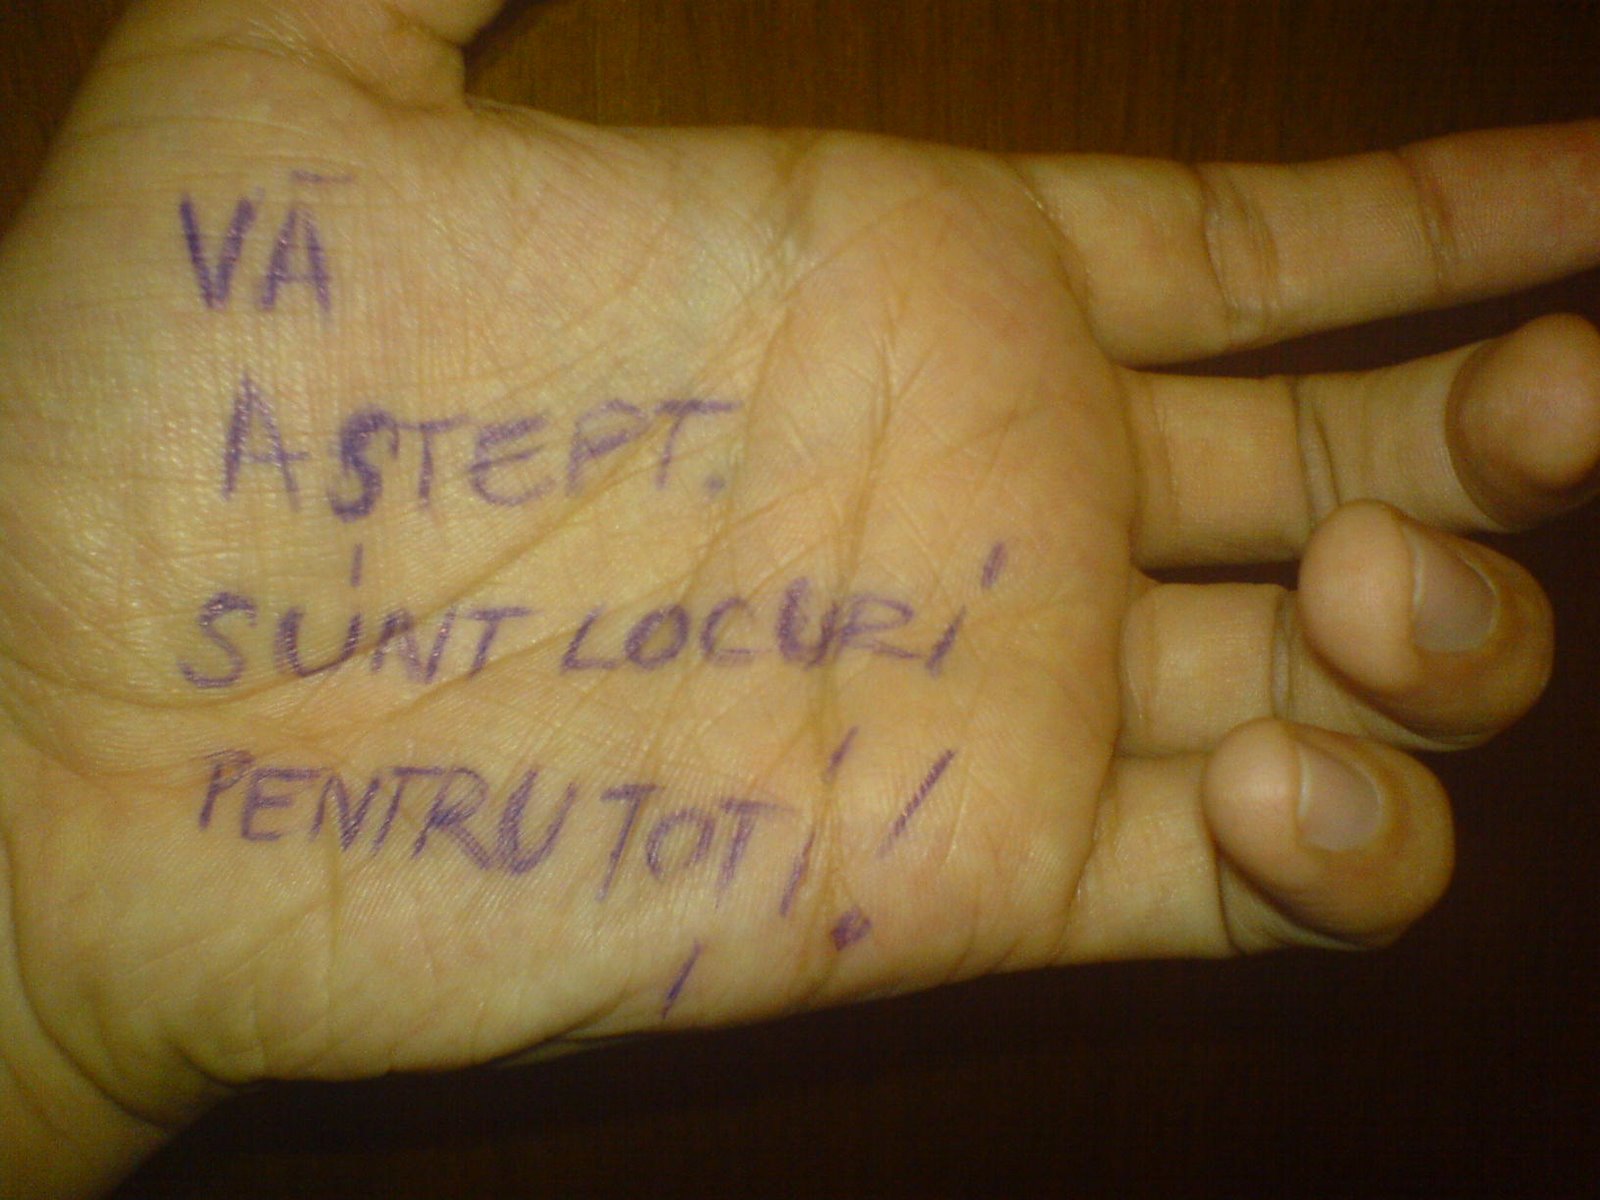 VĂ
AȘTEPT.
SUNT LOCURI
PENTRU TOȚI!